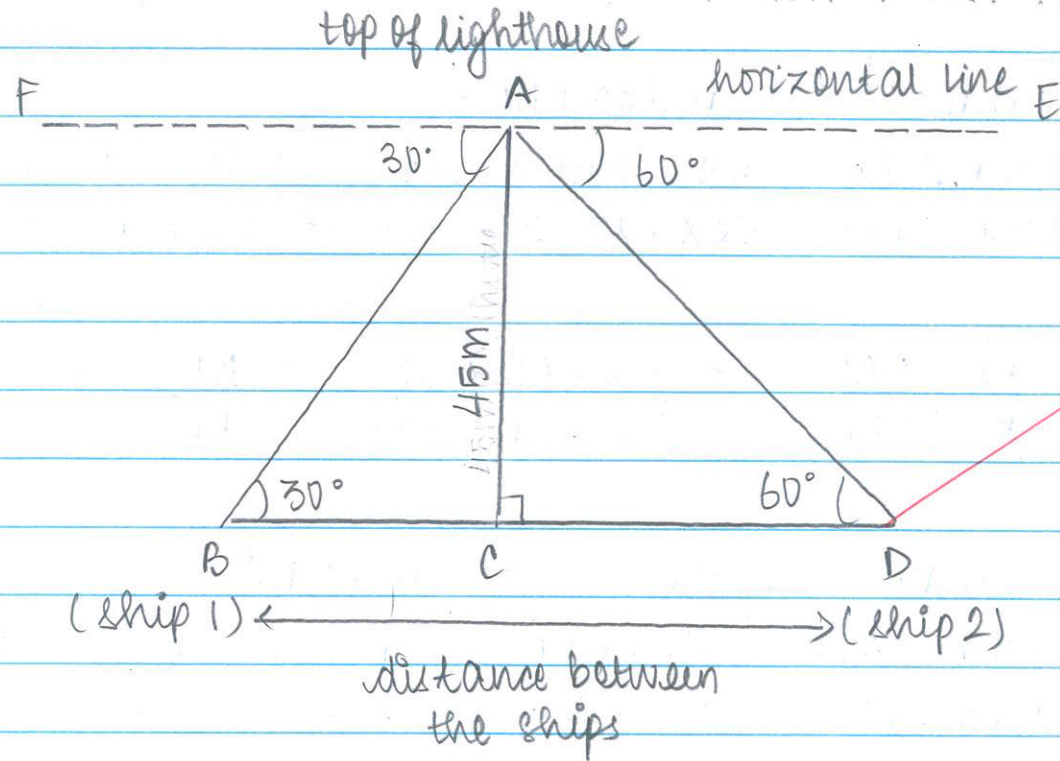 top of lighthouse
horizontal line
F A E
30° 60°
45m
30° 60°
B C D
(ship 1) (ship 2)
distance between
the ships